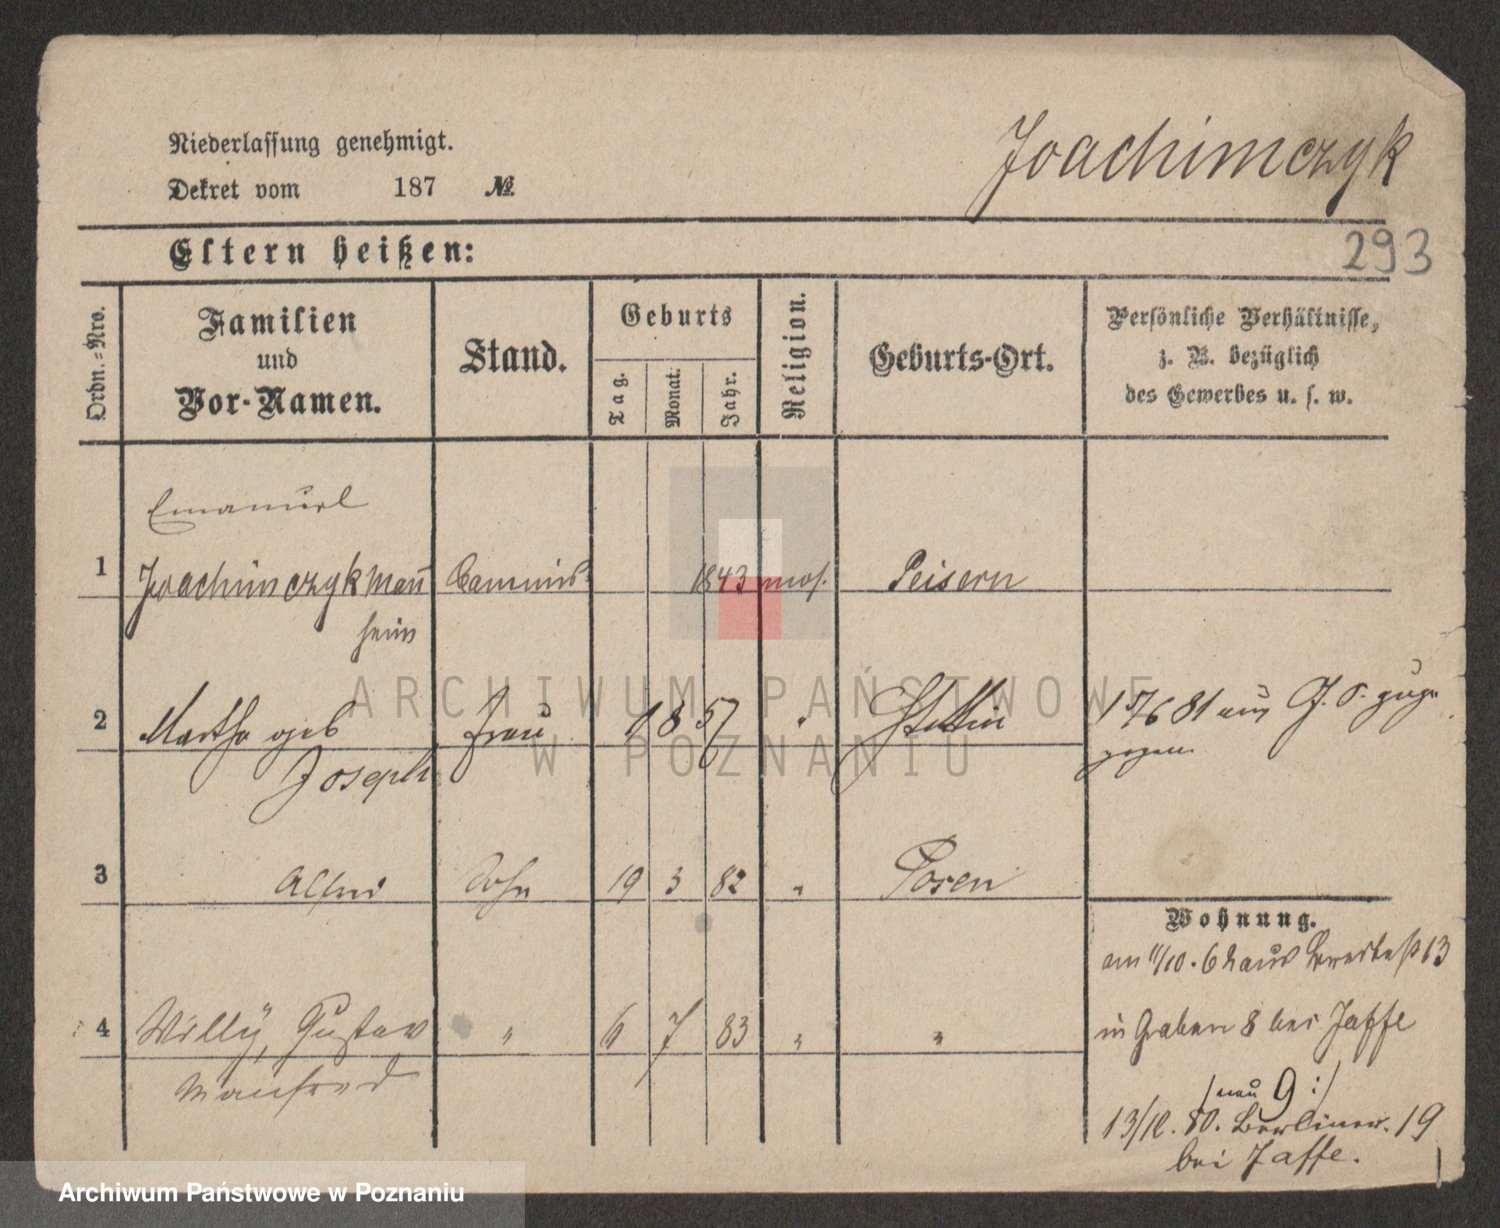 Niederlassung genehmigt.
Joachimczyk
Dekret vom 187 №
293
Eltern heißen:
Ordn.-Nro.
Familien
und
Vor-Namen.
Stand.
Geburts
Tag.
Monat.
Jahr.
Religion.
Geburts-Ort.
Persönliche Verhältnisse,
z. B. bezüglich
des Gewerbes u. s. w.
Emanuel
1 Joachimczyk Man Commis 1843 mos. Peisern
heim
2 Martha geb Frau 1857 " Stettin 15/6 81 aus
Joseph
3 Alfred Sohn 19 3 82 " Posen
Wohnung.
am 11/10. aus 13
4 Willy, Gustav " 6 7 83 " " in Graben 8 bei Jaffe
Manfred
(neu 9:)
13/10. 80. Berliner. 19
bei Jaffe.
ARCHIWUM PAŃSTWOWE
W POZNANIU
Archiwum Państwowe w Poznaniu